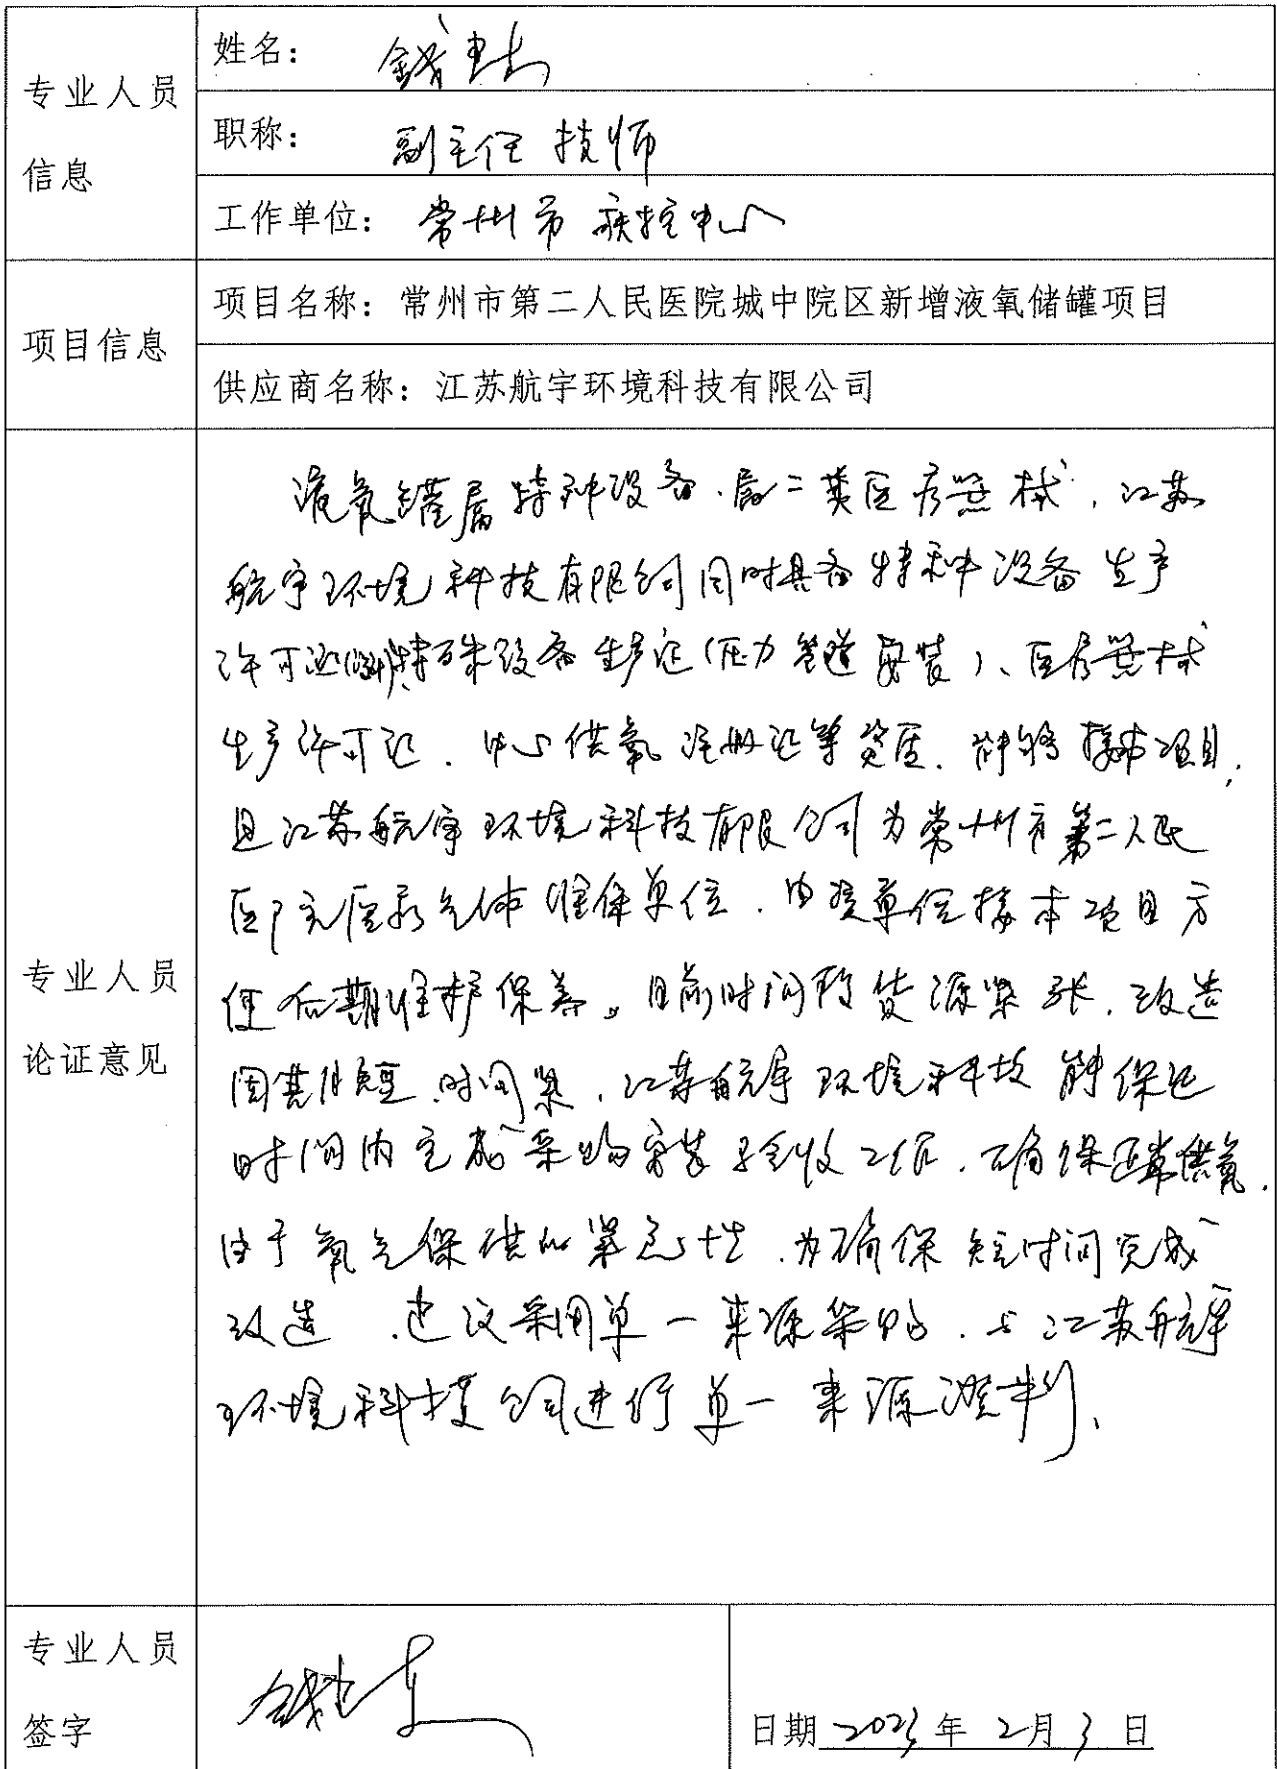 专业人员
信息
姓名：
职称：副主任技师
工作单位：常州市疾控中心
项目信息
项目名称：常州市第二人民医院城中院区新增液氧储罐项目
供应商名称：江苏航宇环境科技有限公司
专业人员
论证意见
液氧罐属特种设备.属二类医疗器械，江苏
航宇环境科技有限公司同时具备特种设备生产
许可证特殊设备生产证(压力管道安装)、医疗器械
生产许可证.中心供氧注册证等资质.能够接本项目，
且江苏航宇环境科技有限公司为常州市第二人民
医院医疗气体维保单位.由该单位接本项目方
便后期维护保养。目前时间货源紧张.改造
周期短.时间紧，江苏航宇环境科技能保证
时间内完成采购安装验收工作.确保正常供氧.
由于氧气保供的紧急性.为确保短时间完成
改造.建议采用单一来源采购.与江苏航宇
环境科技公司进行单一来源谈判、
专业人员
签字
日期 2023 年 2 月 3 日